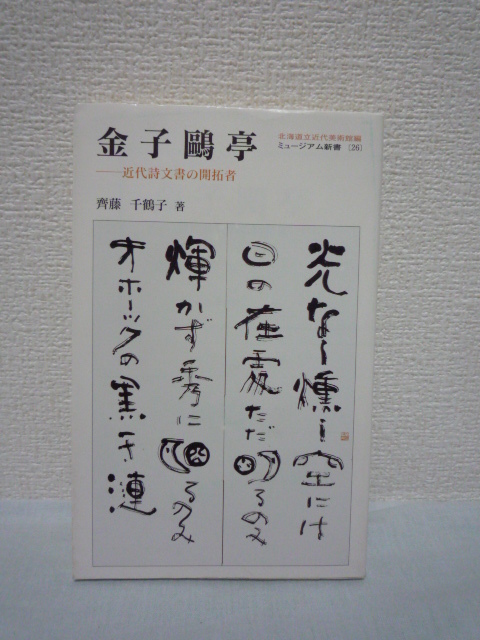 金子鷗亭
——近代詩文書の開拓者
齊藤 千鶴子 著
北海道立近代美術館編
ミュージアム新書 〔26〕
光なく燻し空には
日の在處ただ明るのみ
輝かず秀に明るのみ
オホーツクの黒き漣